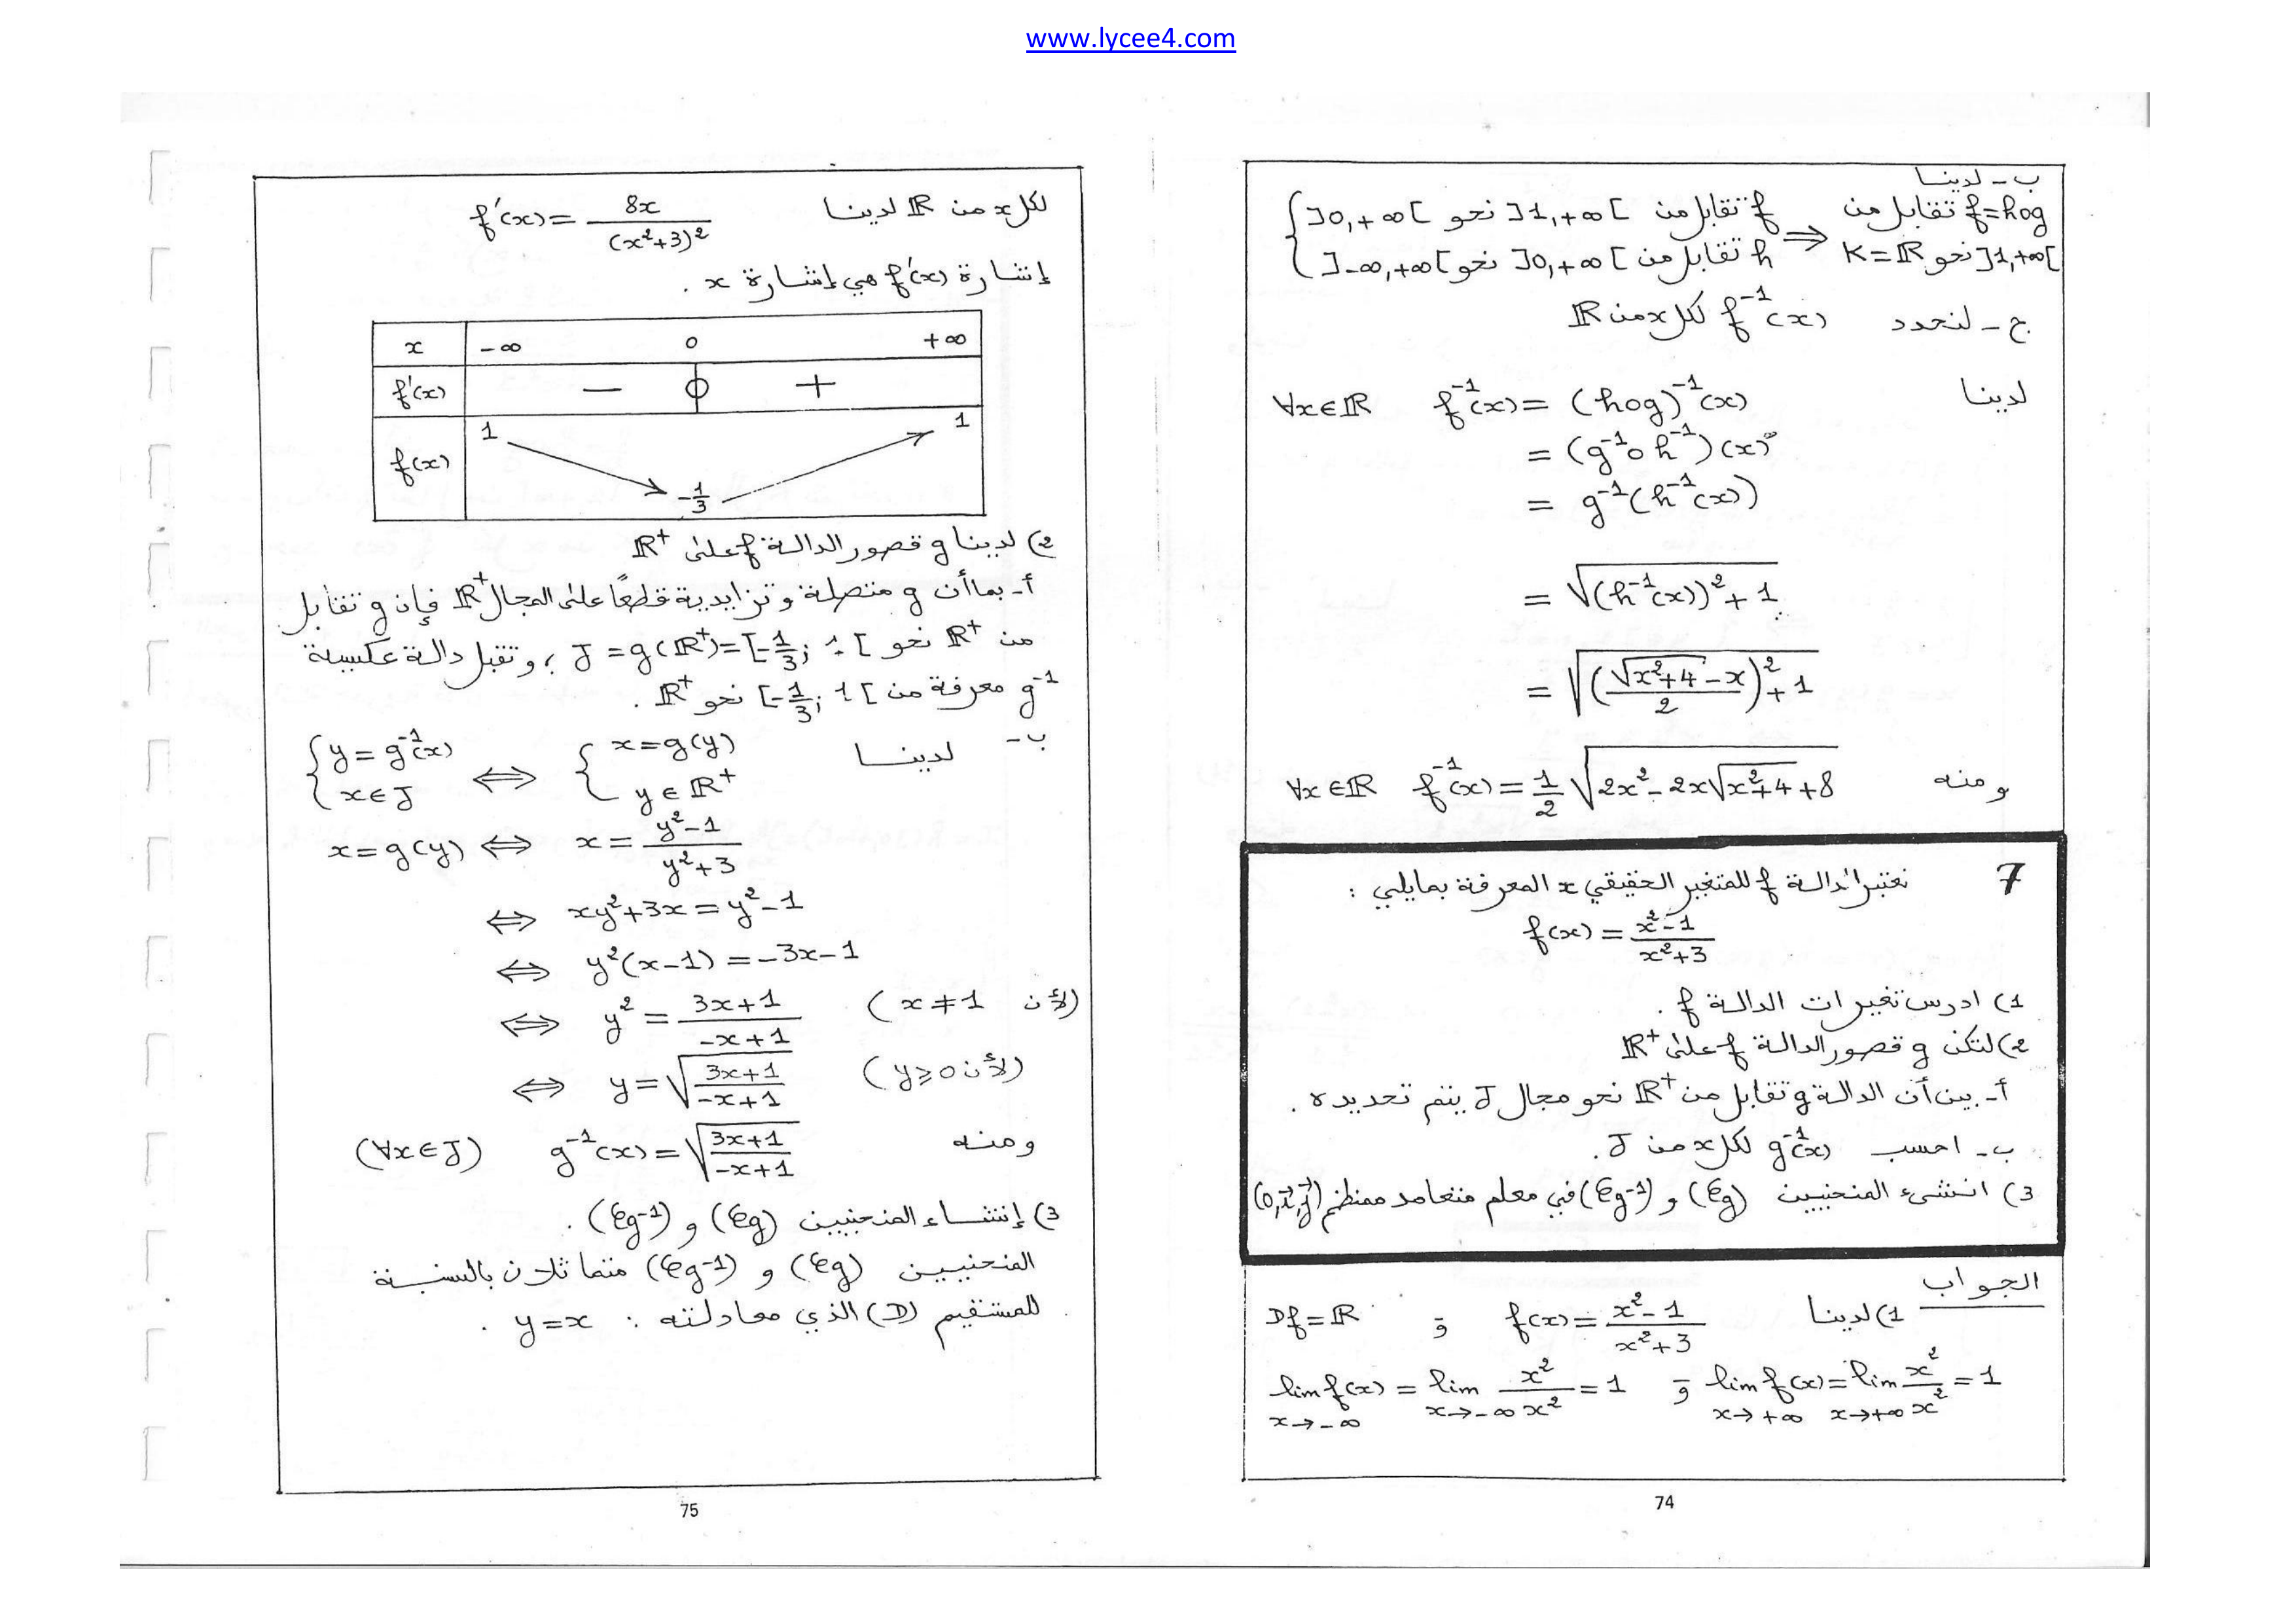 www.lycee4.com
ب - لدينا
f=hog تقابل من ]1,+∞[ نحو K=ℝ ⇒ { f تقابل من ]1,+∞[ نحو ]0,+∞[
h تقابل من ]0,+∞[ نحو ]-∞,+∞[
ج - لنحدد f⁻¹(x) لكل x من ℝ
لدينا ∀x∈ℝ f⁻¹(x) = (hog)⁻¹(x)
= (g⁻¹oh⁻¹)(x)
= g⁻¹(h⁻¹(x))
= √((h⁻¹(x))²+1)
= √(((√(x²+4)-x)/2)²+1)
ومنه ∀x∈ℝ f⁻¹(x) = 1/2 √(2x²-2x√(x²+4)+8)
7 نعتبر الدالة f للمتغير الحقيقي x المعرفة بمايلي :
f(x) = (x²-1)/(x²+3)
1) ادرس تغيرات الدالة f .
2) لتكن g قصور الدالة f على ℝ⁺
أ - بين أن الدالة g تقابل من ℝ⁺ نحو مجال J يتم تحديده .
ب - احسب g⁻¹(x) لكل x من J .
3) انشىء المنحنيين (𝒞g) و (𝒞g⁻¹) في معلم متعامد ممنظم (0,i⃗,j⃗)
الجواب
1) لدينا f(x) = (x²-1)/(x²+3) و Df=ℝ
lim f(x) x→+∞ = lim x→+∞ x²/x² = 1 و lim f(x) x→-∞ = lim x→-∞ x²/x² = 1
74
لكل x من ℝ لدينا f'(x) = 8x/(x²+3)²
إشارة f'(x) هي إشارة x .
x -∞ 0 +∞
f'(x) - 0 +
f(x) 1 -1/3 1
2) لدينا g قصور الدالة f على ℝ⁺
أ - بما أن g متصلة وتزايدية قطعًا على المجال ℝ⁺ فإن g تقابل
من ℝ⁺ نحو J = g(ℝ⁺) = [-1/3; 1[ ، وتقبل دالة عكسية
g⁻¹ معرفة من [-1/3; 1[ نحو ℝ⁺ .
ب - لدينا { x=g(y) y∈ℝ⁺ ⇔ { y=g⁻¹(x) x∈J
x=g(y) ⇔ x = (y²-1)/(y²+3)
⇔ xy²+3x = y²-1
⇔ y²(x-1) = -3x-1
⇔ y² = (3x+1)/(-x+1) (لأن x≠1)
⇔ y = √((3x+1)/(-x+1)) (لأن y⩾0)
ومنه g⁻¹(x) = √((3x+1)/(-x+1)) (∀x∈J)
3) إنشاء المنحنيين (𝒞g) و (𝒞g⁻¹) .
المنحنيين (𝒞g) و (𝒞g⁻¹) متماثلان بالنسبة
للمستقيم (D) الذي معادلته : y=x .
75